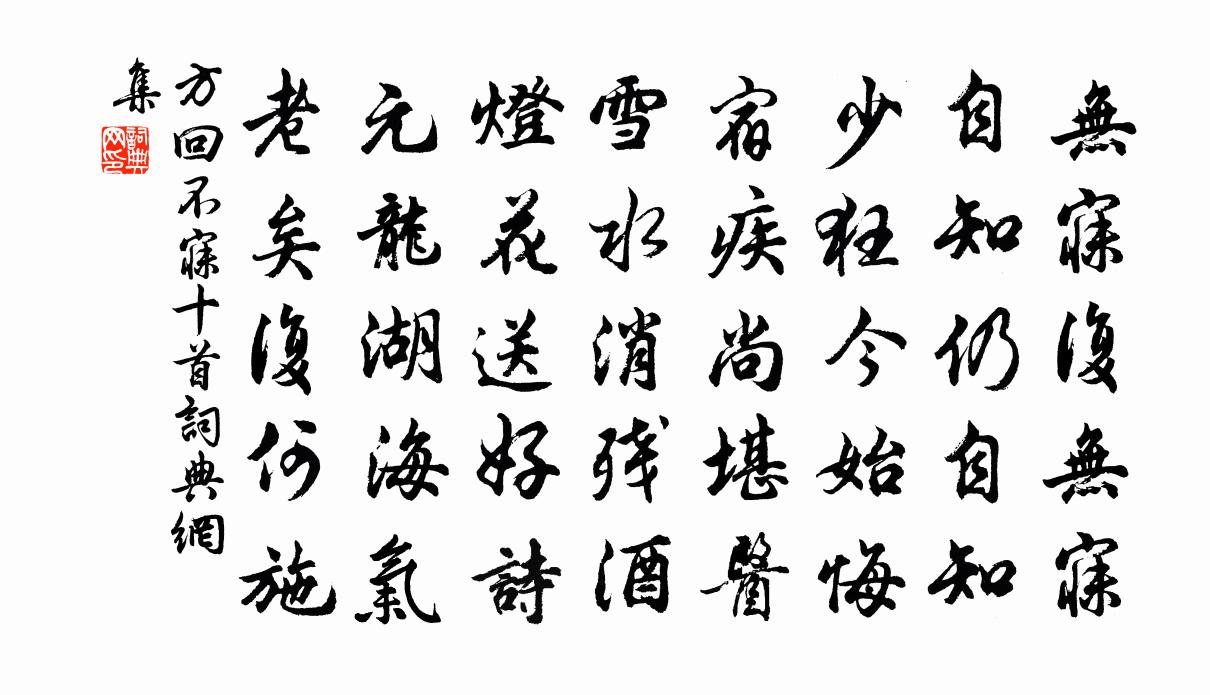 無寐復無寐
自知仍自知
少狂今始悔
宿疾尚堪醫
雪水消残酒
燈花送好詩
元龍湖海氣
老矣復何施
方回不寐十首詞典網
集
詞典网印